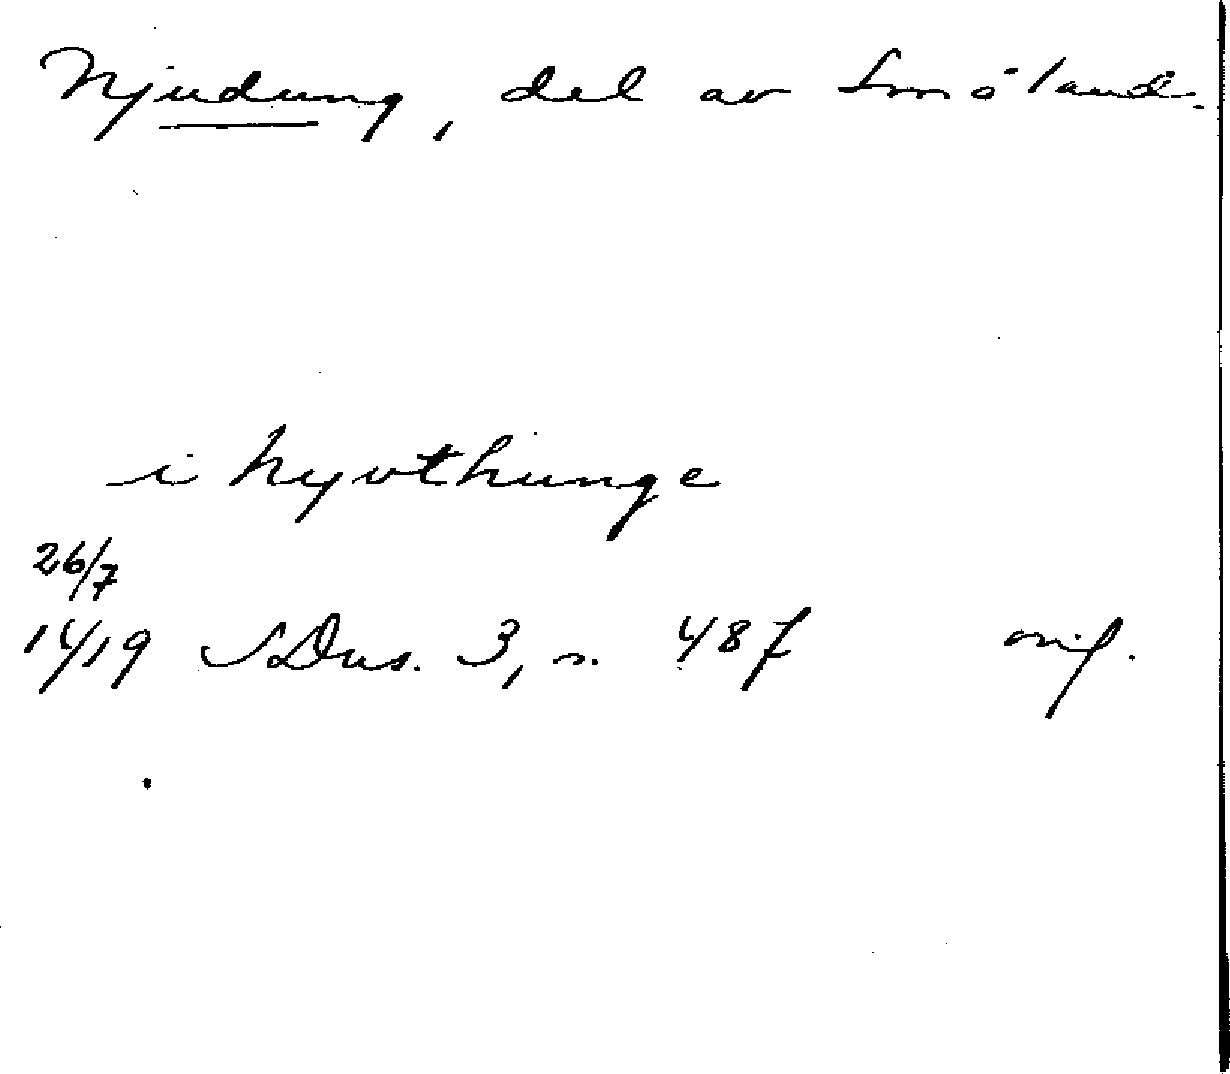 Njudung, del av Småland.
i Nyvthunge
26/7
1419 SDns. 3, s. 487 orig.